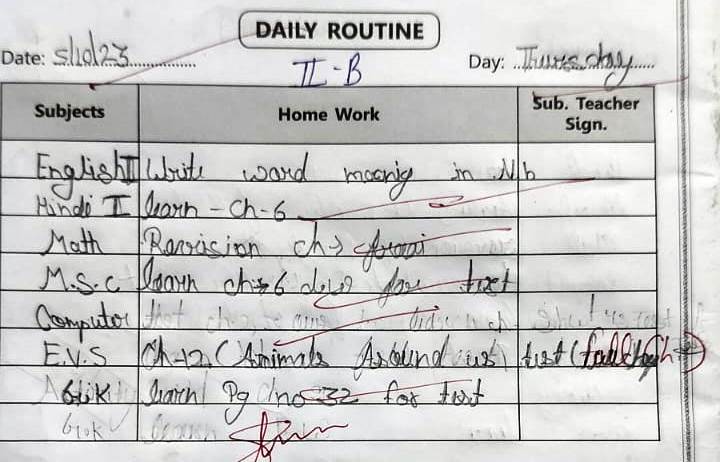 DAILY ROUTINE
Date: 5/10/23 Day: Thursday
II-B
Subjects Home Work Sub. Teacher Sign.
English II Write ward meanig in N.b
Hindi II learn - Ch-6
Math Revision ch
M.S.C learn ch 6 for test
Computer
E.V.S Ch-12 (Animals Around us) test (full ch)
G.K learn Pg no 32 for test
G.K